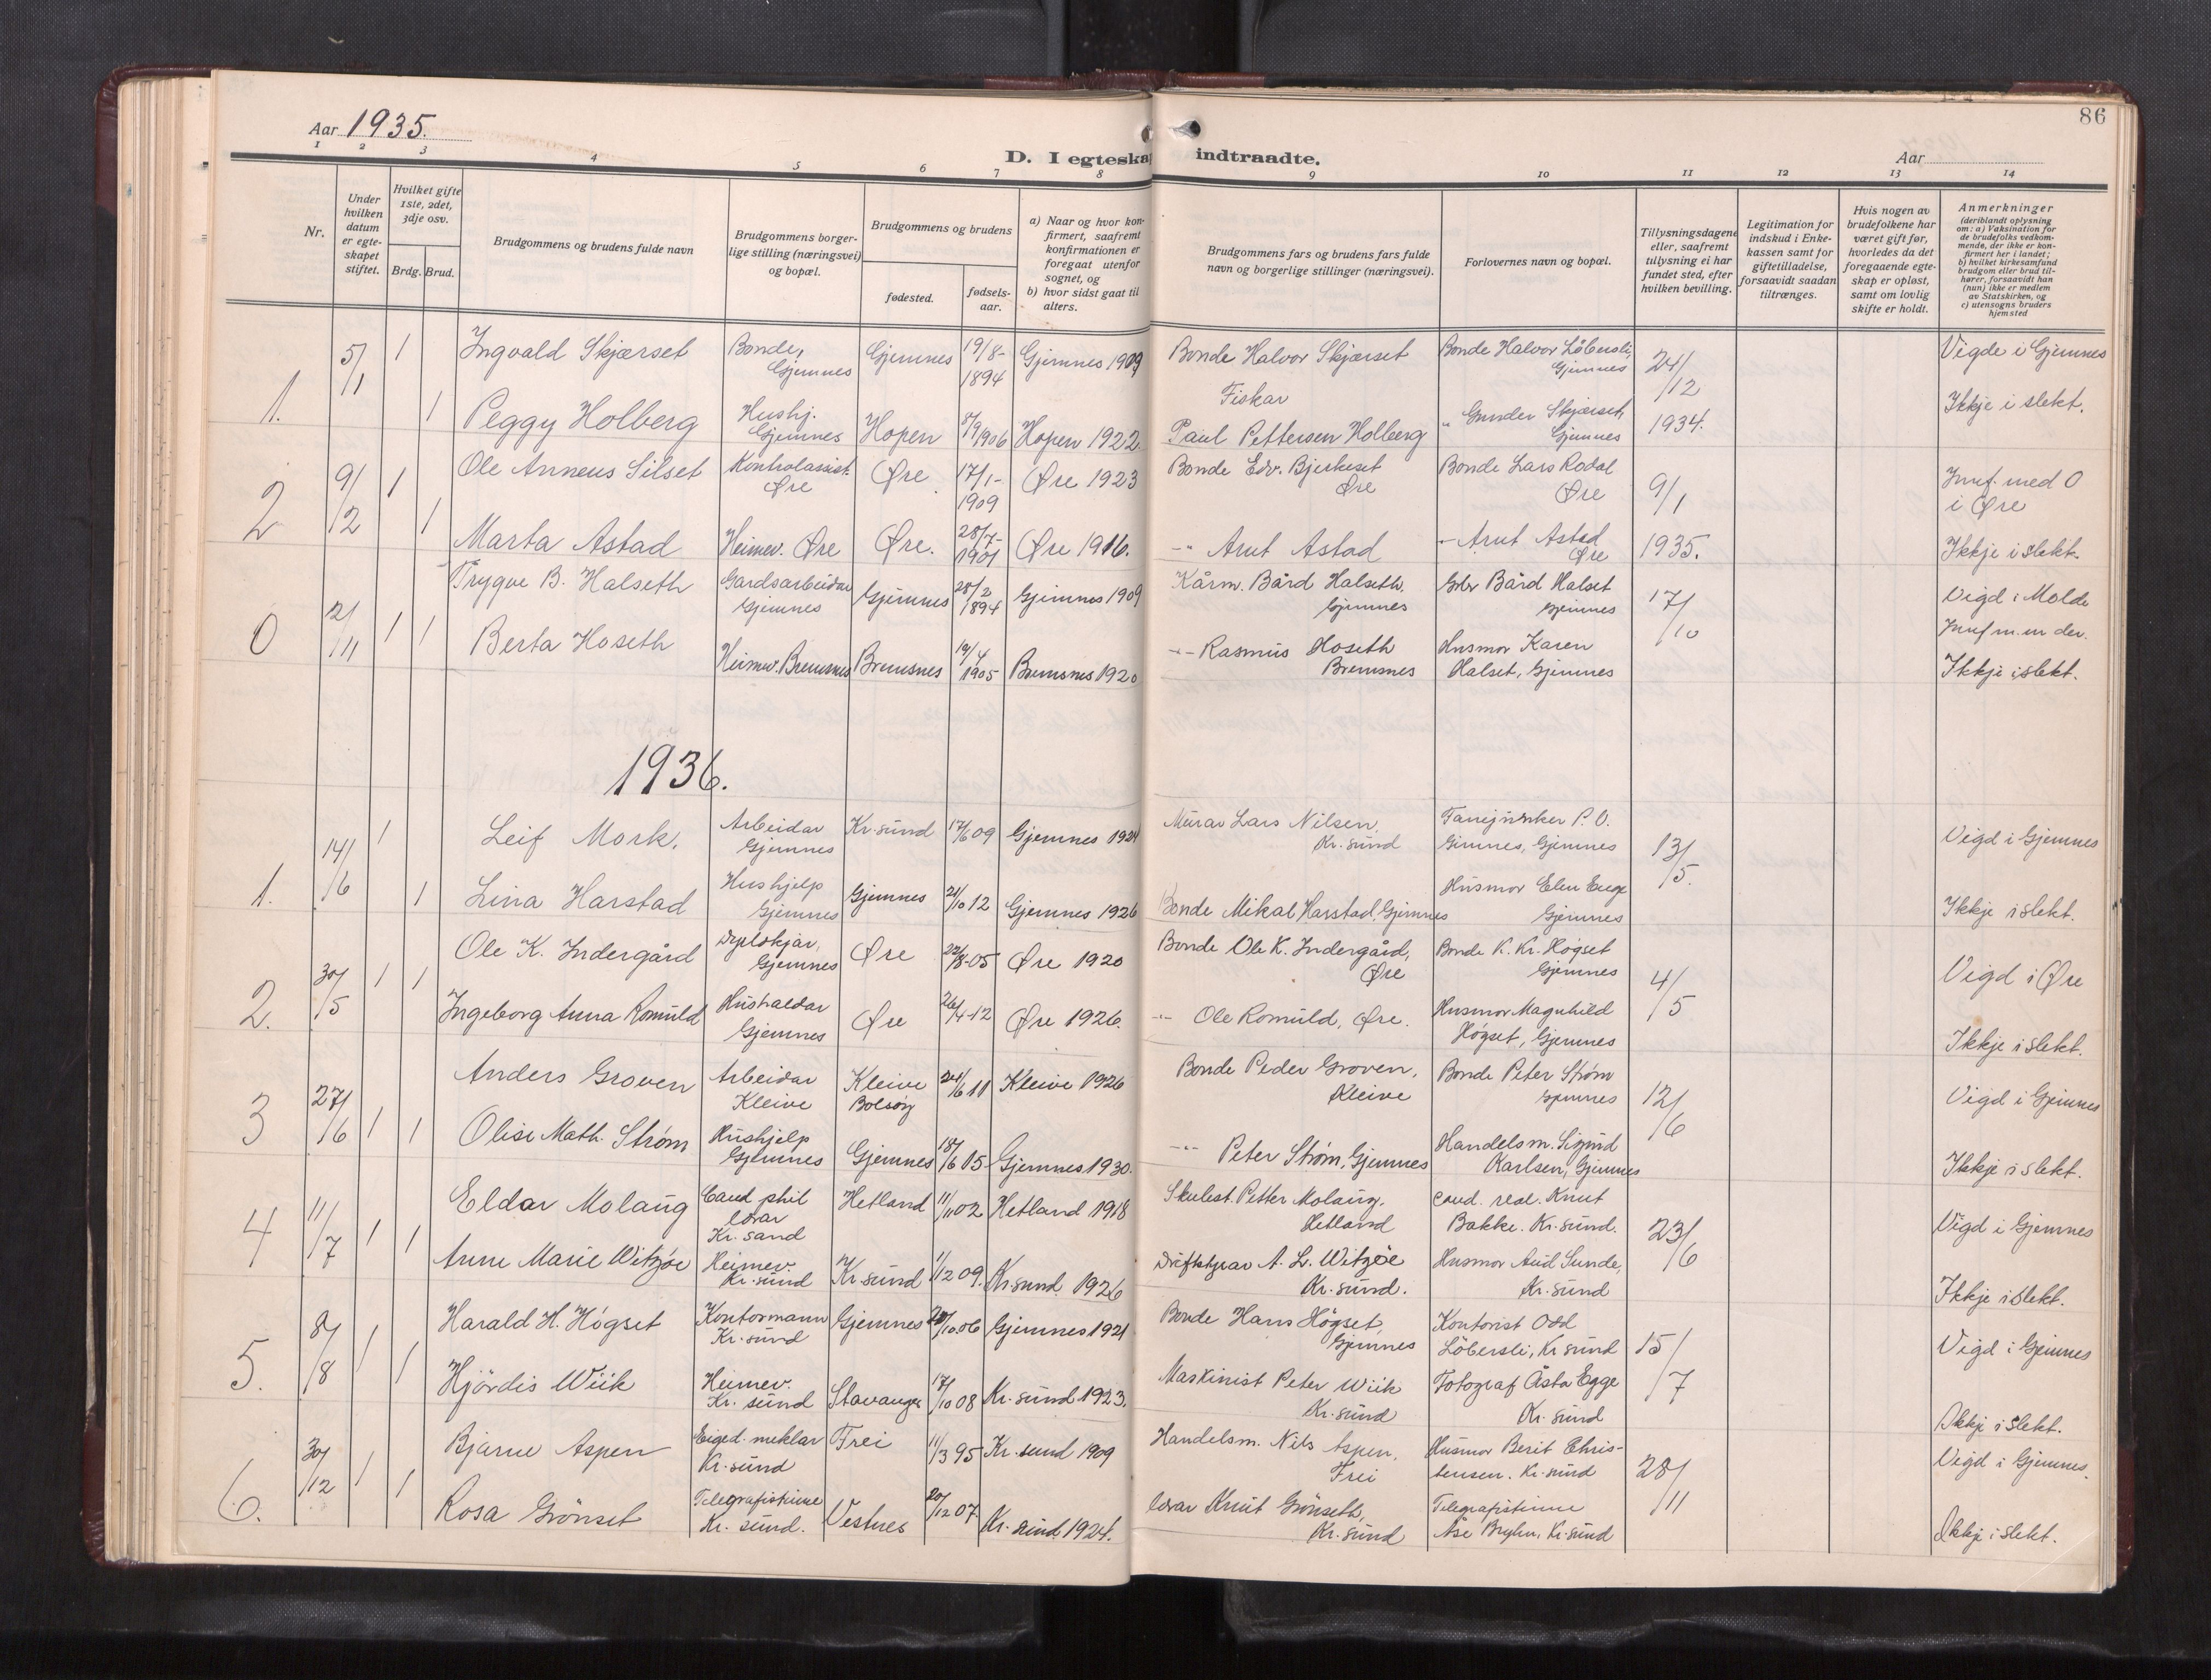 86
Aar 1935.
Aar
D. I egteska
indtraadte.
1 2 3 4 5 6 7 8 9 10 11 12 13 14
Nr.
Under hvilken datum er egte-skapet stiftet.
Hvilket gifte 1ste, 2det, 3dje osv.
Brdg. Brud.
Brudgommens og brudens fulde navn
Brudgommens borger-lige stilling (næringsvei) og bopæl.
Brudgommens og brudens
fødested.
fødsels-aar.
a) Naar og hvor kon-firmert, saafremt konfirmationen er foregaat utenfor sognet, og
b) hvor sidst gaat til alters.
Brudgommens fars og brudens fars fulde navn og borgerlige stillinger (næringsvei).
Forlovernes navn og bopæl.
Tillysningsdagene eller, saafremt tillysning ei har fundet sted, efter hvilken bevilling.
Legitimation for indskud i Enke-kassen samt for giftetilladelse, forsaavidt saadan tiltrænges.
Hvis nogen av brudefolkene har været gift før, hvorledes da det foregaaende egte-skap er opløst, samt om lovlig skifte er holdt.
Anmerkninger
(deriblandt oplysning om: a) Vaksination for de brudefolks vedkom-mende, der ikke er kon-firmert her i landet; b) hvilket kirkesamfund brudgom eller brud til-hører, forsaavidt han (hun) ikke er medlem av Statskirken, og c) utensogns bruders hjemsted
1. 5/1 1 Ingvald Skjærset Bonde, Gjemnes Gjemnes 19/8-1894 Gjemnes 1909 Bonde Halvor Skjærset Bonde Halvor Löbersli, Gjemnes 24/12 1934. Vigde i Gjemnes
1 Peggy Holberg Hushj. Gjemnes Hopen 8/9 1906 Hopen 1922. Fiskar Paul Pettersen Holberg " Gunder Skjærset, Gjemnes Ikkje i slekt.
2 9/2 1 Ole Anneus Silset Kontrolassist. Øre Øre 17/1-1909 Øre 1923 Bonde Edv. Bjerkeset Øre Bonde Lars Rodal Øre 9/1 1935. Innf. med 0 i Øre
1 Marta Astad Heimev. Øre Øre. 28/7-1901 Øre 1916. -"- Arnt Astad -"- Arnt Astad Øre Ikkje i slekt.
0 21/11 1 1 Trygve B. Halseth Gardsarbeidar Gjemnes Gjemnes 28/2 1894 Gjemnes 1909 Kårm. Bård Halseth, Gjemnes Gbr Bård Halset Gjemnes 17/10 Vigd i Molde
Innf m. nr der.
Berta Hoseth Heimev. Bremsnes Bremsnes 19/4 1905 Bremsnes 1920 -"- Rasmus Hoseth Bremsnes Husmor Karen Halset, Gjemnes Ikkje i slekt.
1936.
1. 14/6 1 Leif Mork. Arbeidar Gjemnes Kr.sund 17/6 09 Gjemnes 1924 Murar Lars Nilsen, Kr.sund P. O. Gimnes, Gjemnes 13/5. Vigd i Gjemnes
1 Lina Harstad Hushjelp Gjemnes Gjemnes 21/10 12 Gjemnes 1926 Bonde Mikal Harstad, Gjemnes Husmor Elen Enge Gjemnes Ikkje i slekt.
2. 30/5 1 1 Ole K. Indergård Gjemnes Øre 22/8-05 Øre 1920 Bonde Ole K. Indergård, Øre Bonde K. Kr. Högset Gjemnes 4/5 Vigd i Øre
Ingeborg Anna Romuld Hushaldar Gjemnes Øre 26/4-12 Øre 1926. -"- Ole Romuld, Øre. Husmor Magnhild Högset, Gjemnes Ikkje i slekt.
3 27/6 1 1 Anders Groven Arbeidar Kleive Kleive Bolsöy 24/6 11 Kleive 1926 Bonde Peder Groven, Kleive Bonde Peter Strøm Gjemnes 12/6 Vigd i Gjemnes
Olise Math. Strøm Hushjelp Gjemnes Gjemnes 18/6 15 Gjemnes 1930. -"- Peter Strøm, Gjemnes Handelsm. Sigurd Karlsen, Gjemnes Ikkje i slekt.
4 11/7 1 1 Eldar Molaug Cand phil lærar Kr.sand Hetland 11/11 02 Hetland 1918 Skulest. Petter Molaug, Hetland cand. real. Knut Bakke. Kr.sund. 23/6 Vigd i Gjemnes
Anne Marie Witzöe Heimev. Kr.sund Kr.sund 1/12 09. Kr.sund 1926 Driftstyrar A. L. Witzöe Kr.sund. Husmor Aud Sunde, Kr.sund Ikkje i slekt.
5. 8/8 1 1 Harald H. Högset Kontormann Kr.sund Gjemnes 20/10 06 Gjemnes 1921 Bonde Hans Högset, Gjemnes Kontorist Odd Löbersli, Kr sund 15/7 Vigd i Gjemnes
Hjördis Wiik Heimev. Kr. sund Stavanger 17/10 08 Kr.sund 1923. Maskinist Peter Wiik Kr.sund Fotograf Åsta Egge Kr.sund Ikkje i slekt.
6. 30/12 1 1 Bjarne Aspen Eiged. meklar Kr.sund Frei 11/3 95 Kr.sund 1909 Handelsm. Nils Aspen, Frei Husmor Berit Chris-tensen. Kr.sund 28/11 Vigd i Gjemnes.
Rosa Grönset Telegrafistinne Kr. sund. Vestnes 20/12 07. Kr.sund 1924. lærar Knut Grönseth, Kr.sund Telegrafistinne Åse Bryhn, Kr.sund Ikkje i slekt.